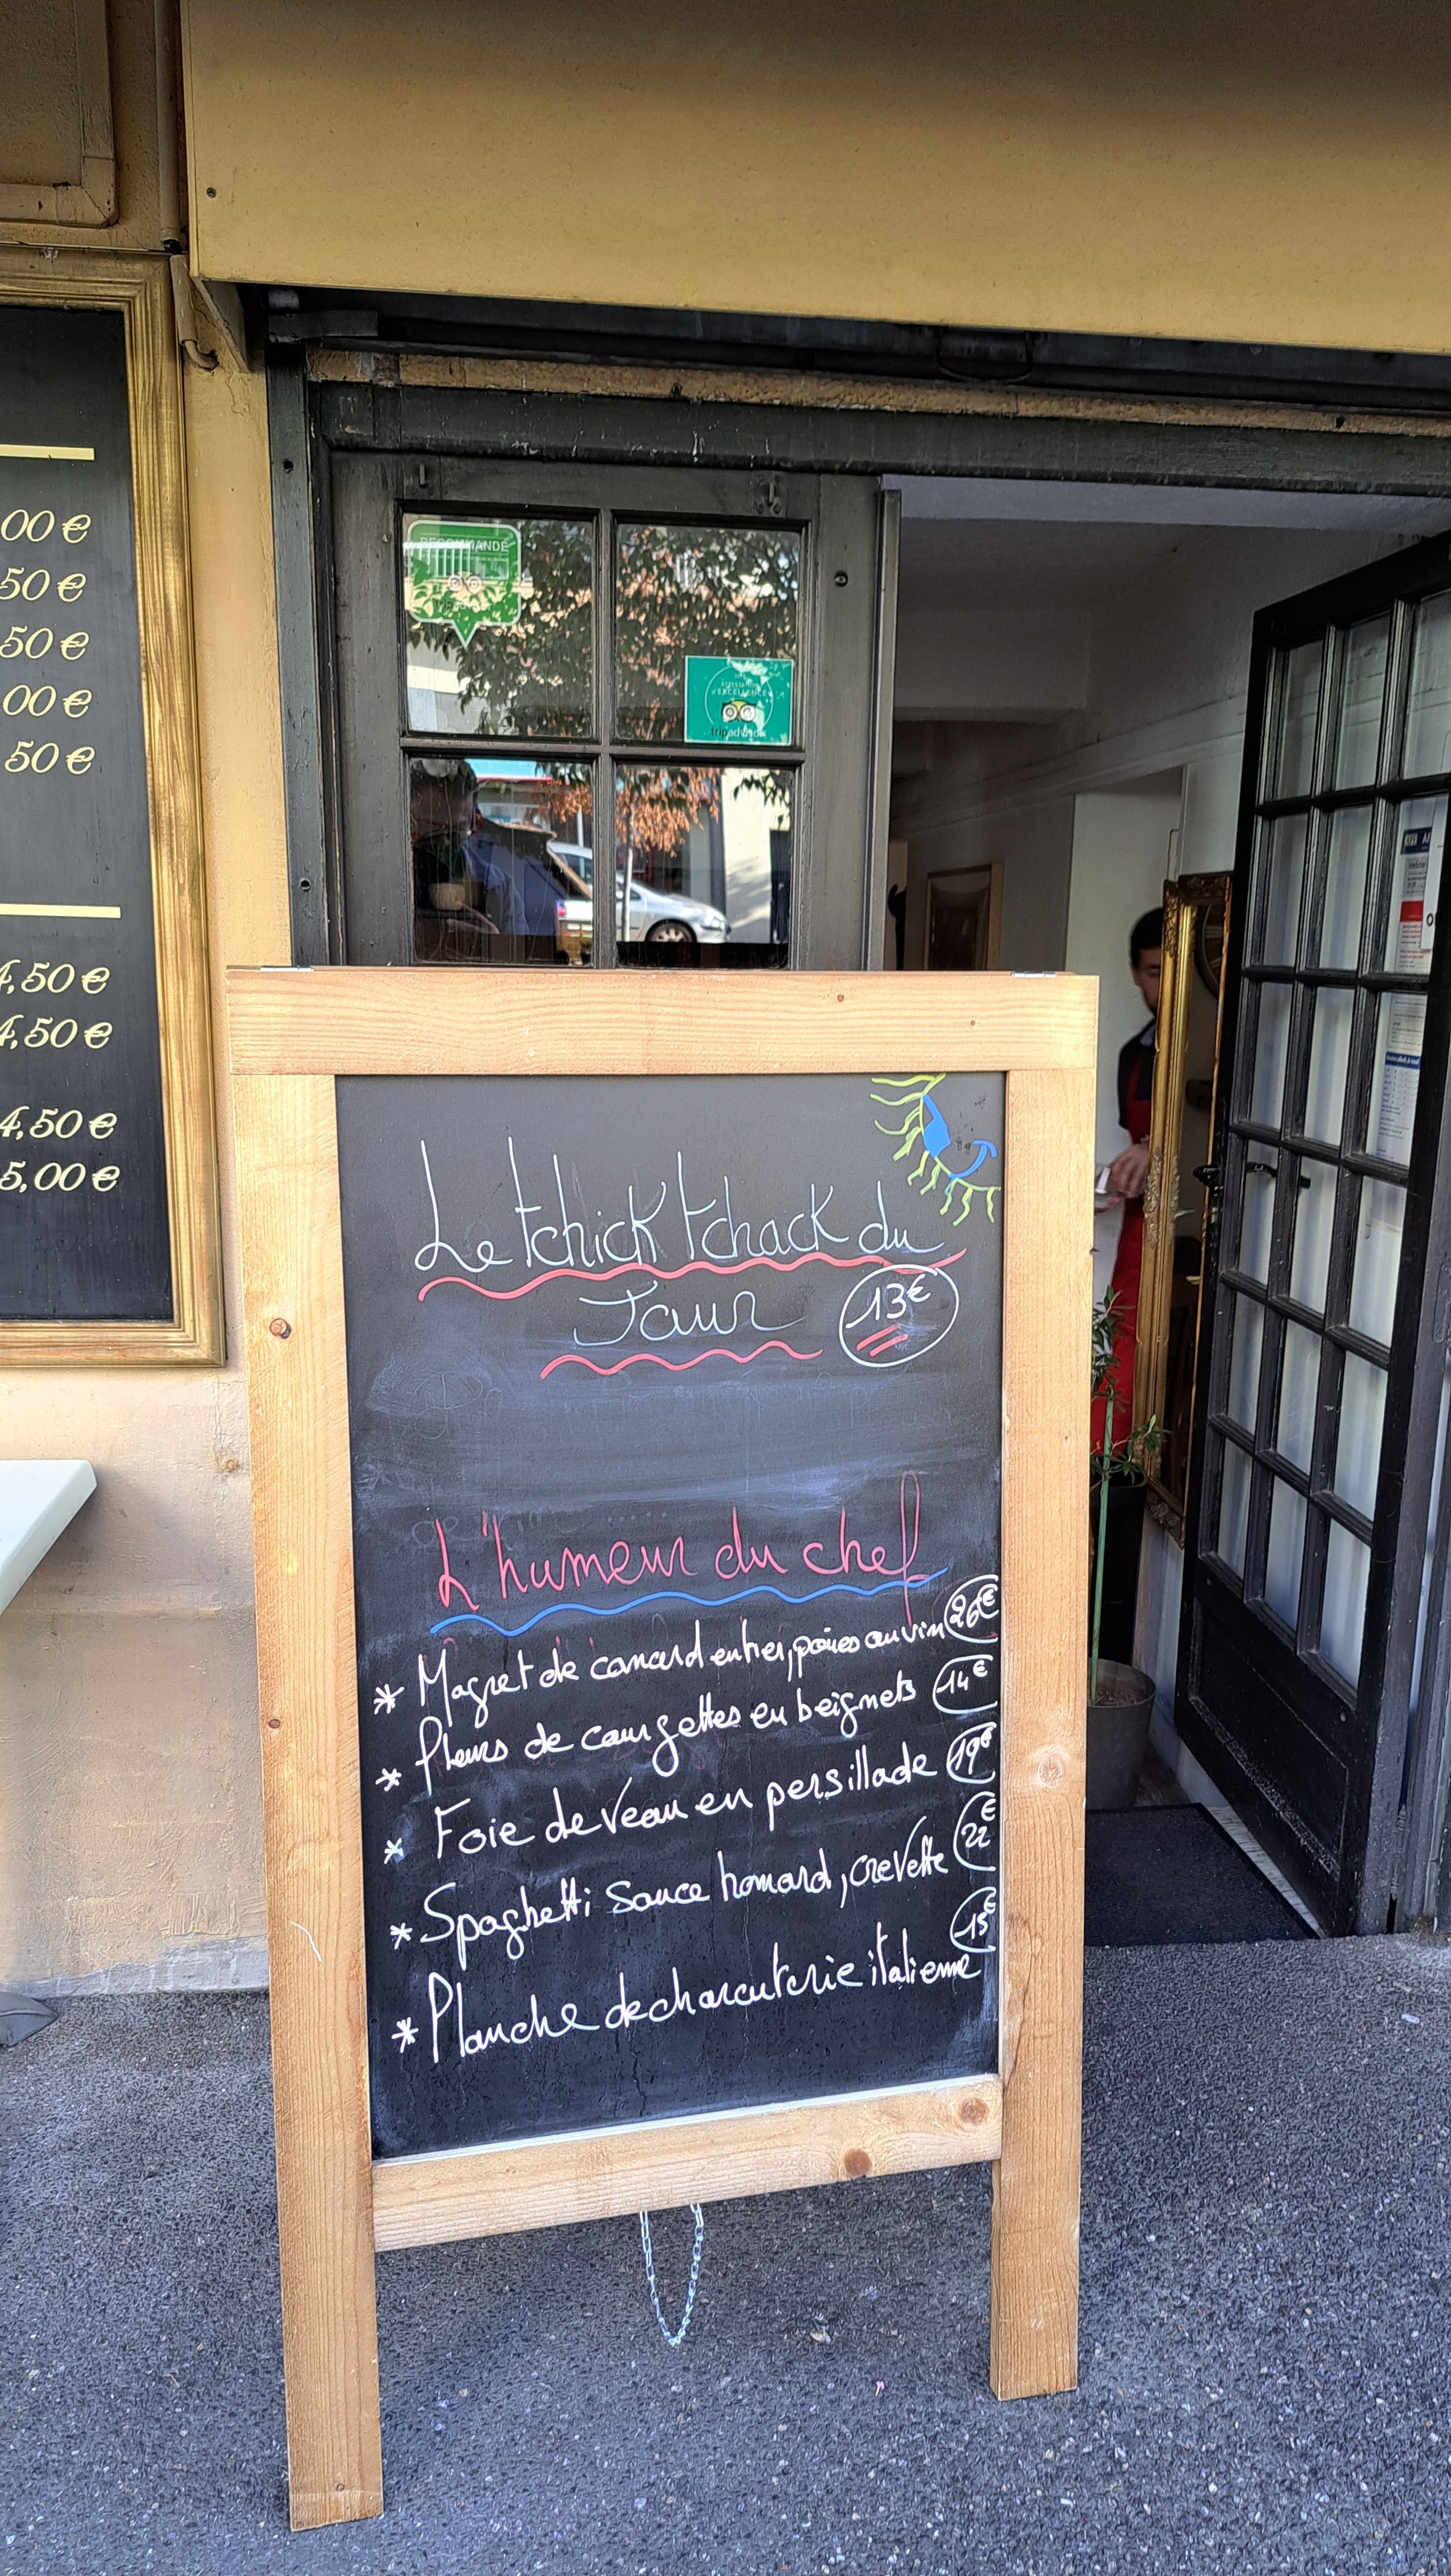 00 €
50 €
50 €
00 €
50 €
4,50 €
4,50 €
4,50 €
5,00 €
RECOMMANDÉ
tripadvisor
ATTESTATION
d'EXCELLENCE
tripadvisor
Le tchick tchack du
Jour 13€
L'humeur du chef
* Magret de canard entier, poires au vin 26€
* fleurs de courgettes en beignets 14€
* Foie de veau en persillade 19€
* Spaghetti sauce homard, crevette 22€
* Planche de charcuterie italienne 15€